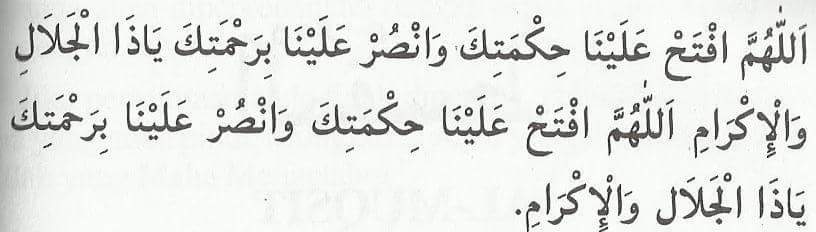 اَللّٰهُمَّ افْتَحْ عَلَيْنَا حِكْمَتِكَ وَانْصُرْ عَلَيْنَا بِرَحْمَتِكَ يَاذَا الْجَلَالِ
وَالْإِكْرَامِ اَللّٰهُمَّ افْتَحْ عَلَيْنَا حِكْمَتِكَ وَانْصُرْ عَلَيْنَا بِرَحْمَتِكَ
يَاذَا الْجَلَال وَالْإِكْرَامِ.